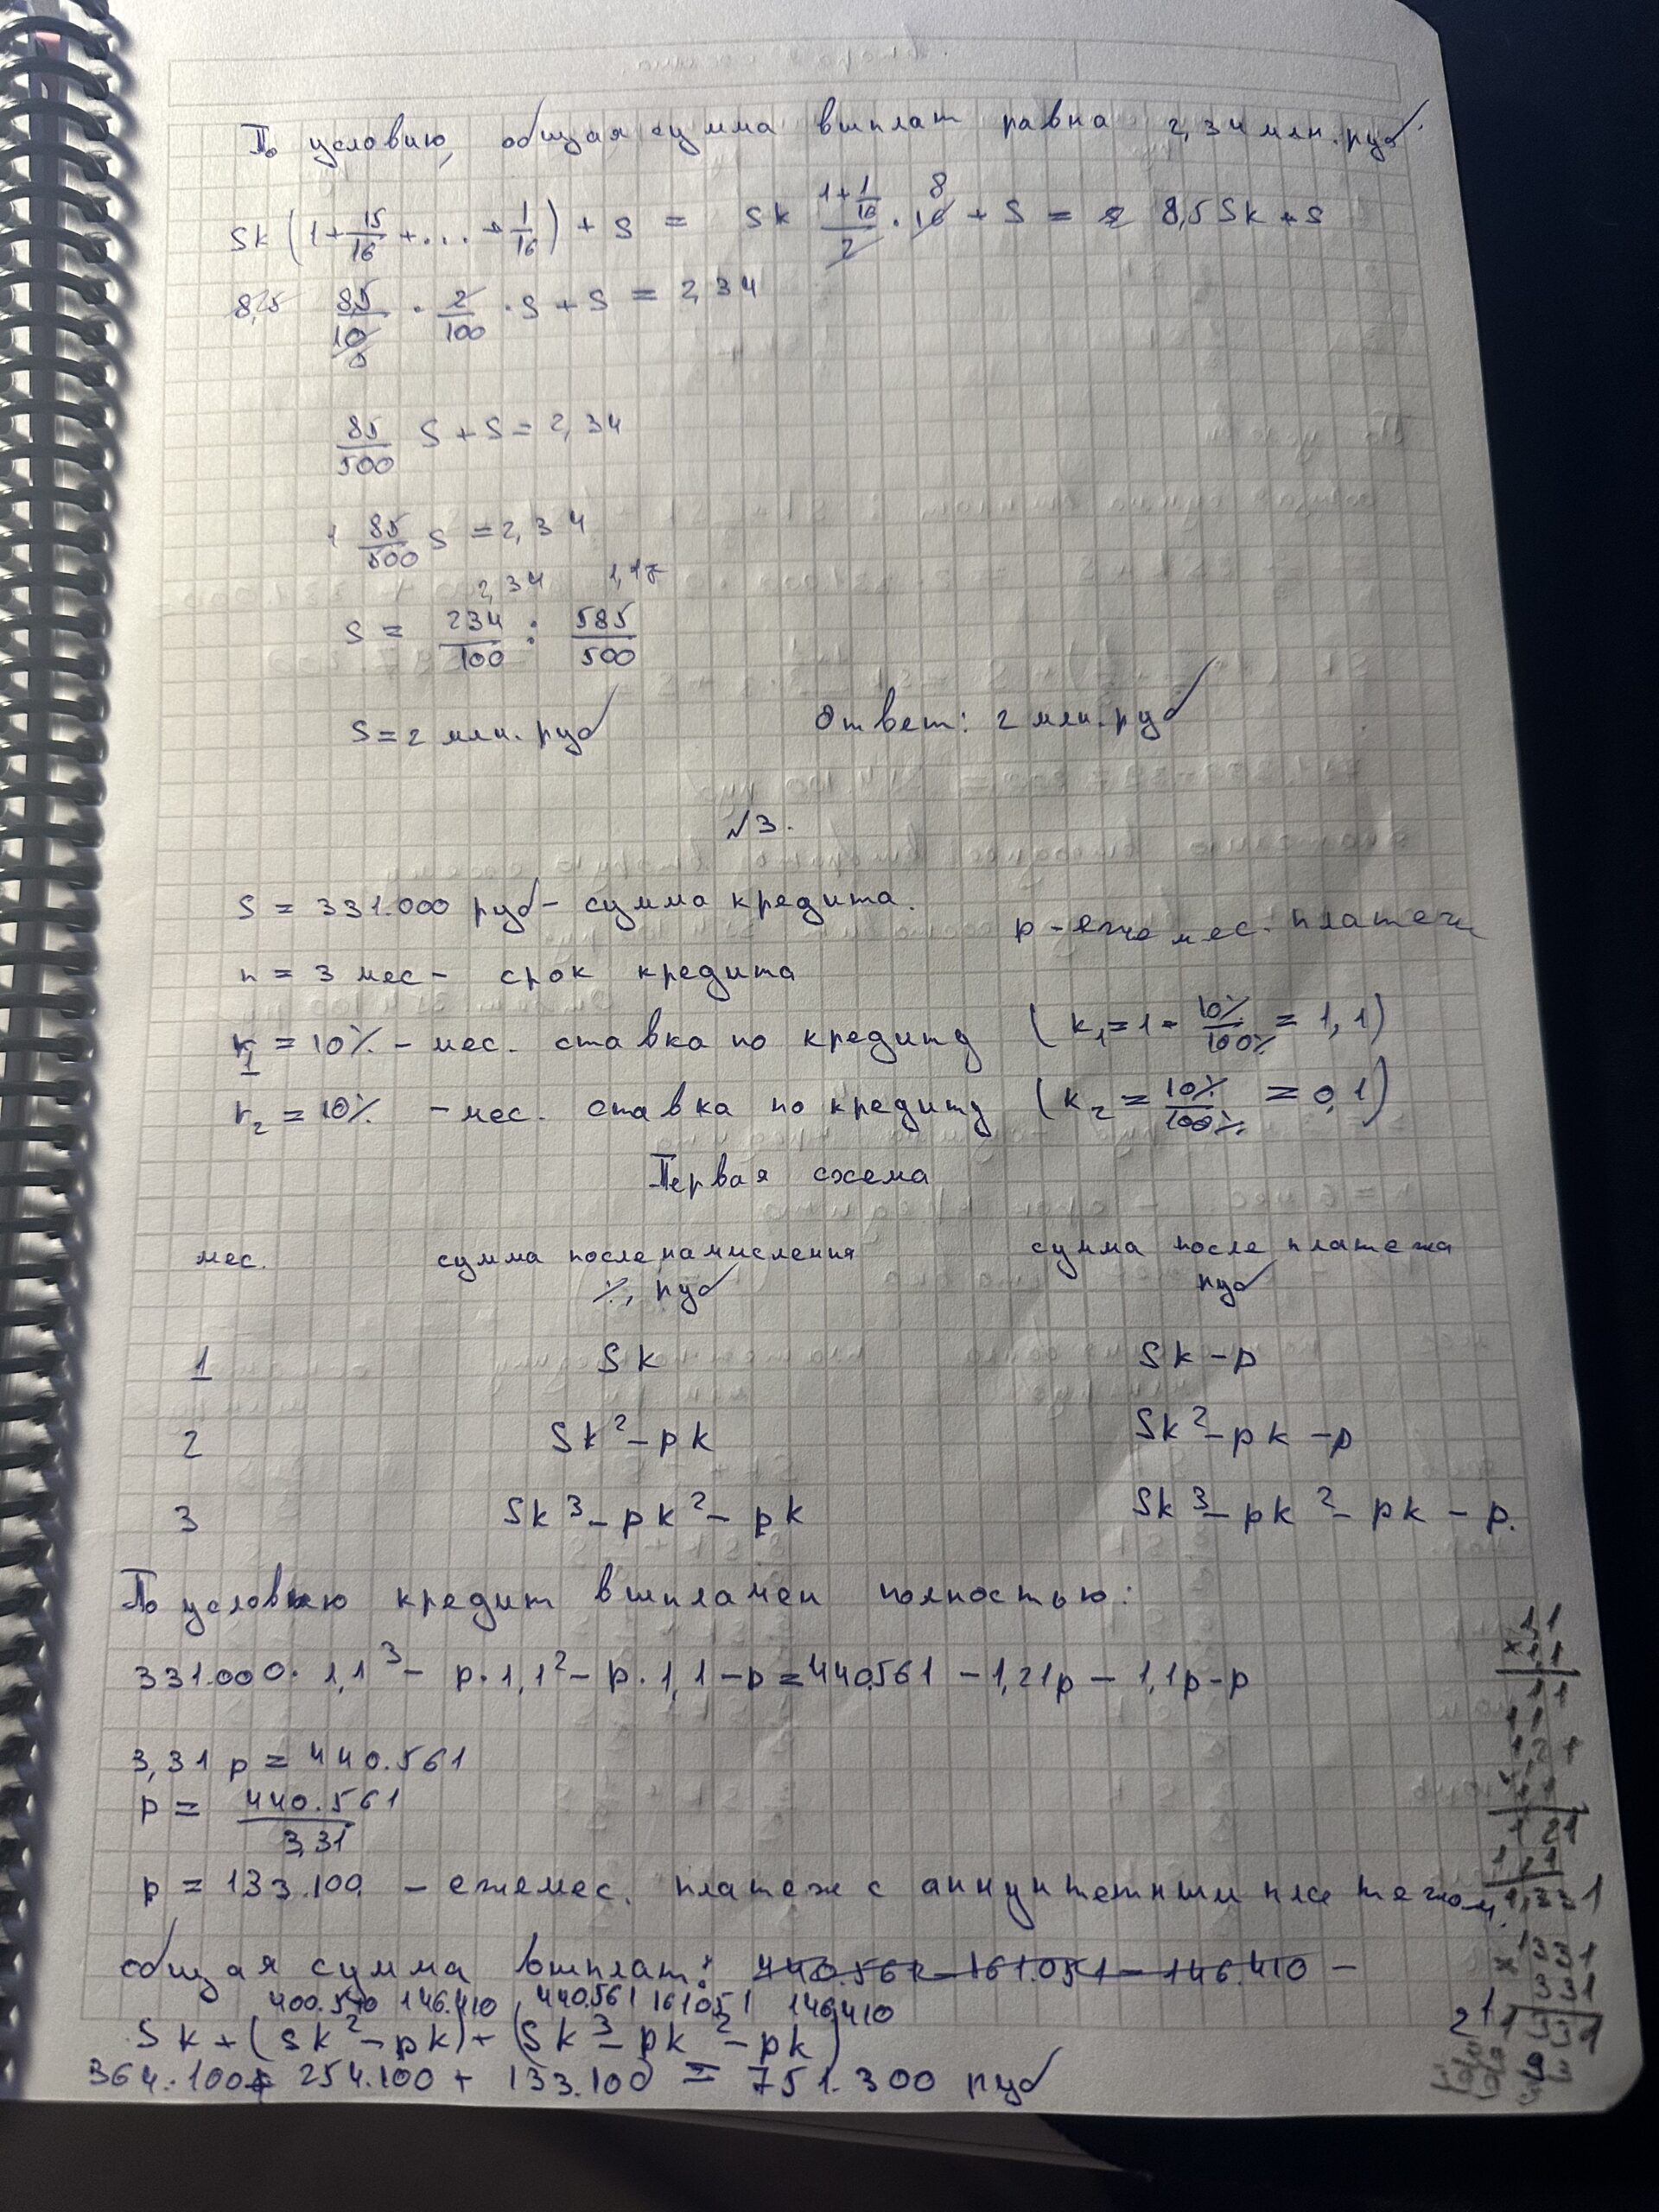 По условию, общая сумма выплат равна 2,34 млн. руб.
Sk (1 + 15/16 + ... + 1/16) + S = Sk (1 + 1/16)/2 · 16 8 + S = 8,5 Sk + S
8,5/10 · 2/100 · S + S = 2,34
85/500 S + S = 2,34
1 85/500 S = 2,34
2,34 1,17
S = 234/100 : 585/500
S = 2 млн. руб Ответ: 2 млн. руб
№3.
S = 331.000 руб - сумма кредита.
p - ежемес. платеж
n = 3 мес - срок кредита
r1 = 10% - мес. ставка по кредиту (k1 = 1 + 10%/100% = 1,1)
r2 = 10% - мес. ставка по кредиту (k2 = 10%/100% = 0,1)
Первая схема
мес. сумма после начисления %, руб сумма после платежа руб
1 Sk Sk - p
2 Sk² - pk Sk² - pk - p
3 Sk³ - pk² - pk Sk³ - pk² - pk - p.
По условию кредит выплачен полностью:
331.000 · 1,1³ - p · 1,1² - p · 1,1 - p = 440561 - 1,21p - 1,1p - p
3,31 p = 440.561
p = 440.561/3,31
p = 133.100 - ежемес. платеж с аннуитетным платежом.
общая сумма выплат: 440.561 - 161.051 - 146.410 -
400.510 146.410 440.561 161051 146410
Sk + (Sk² - pk) + (Sk³ - pk² - pk)
364.100 + 254.100 + 133.100 = 751.300 руб